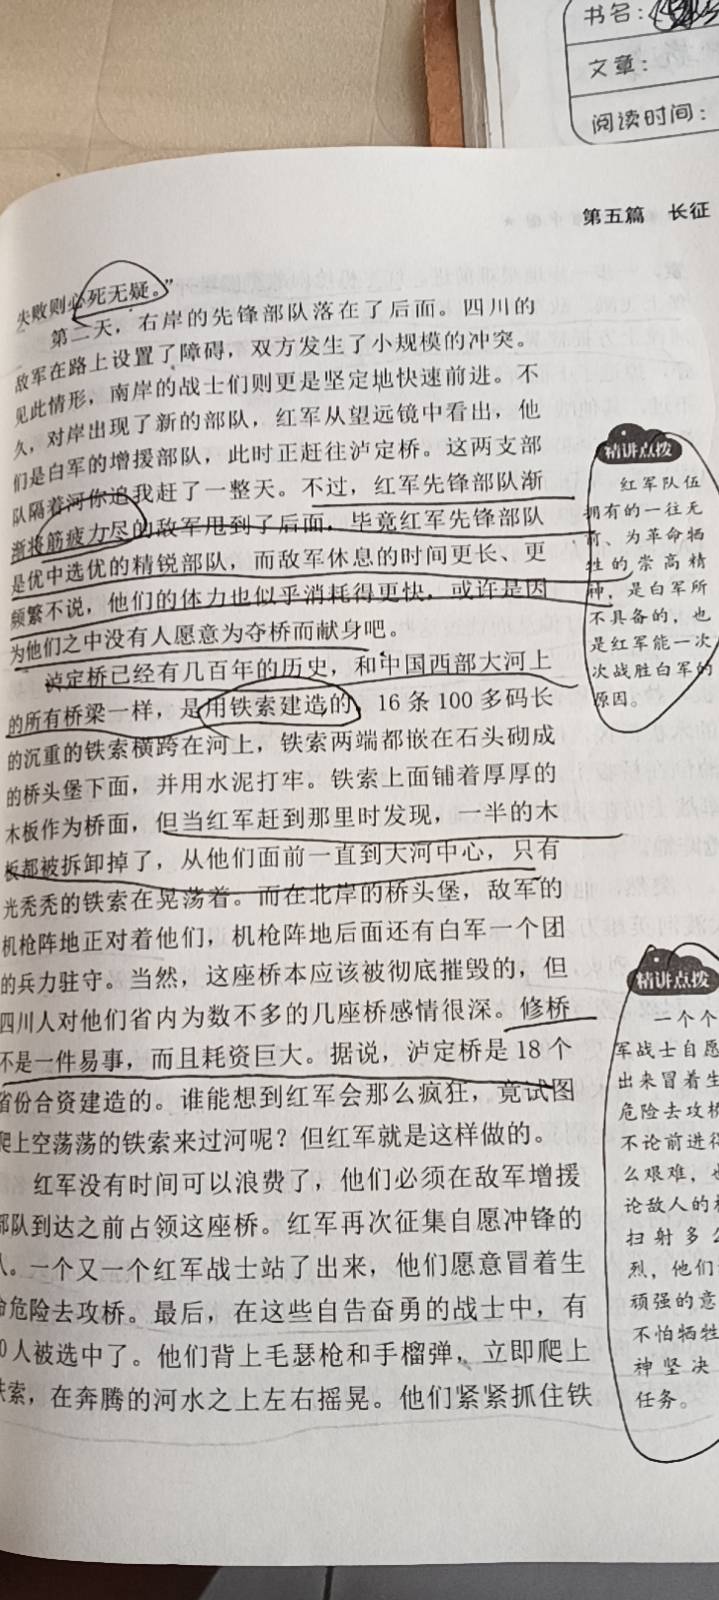 书名：
文章：
阅读时间：
第五篇　长征
失败则必死无疑。”
第二天，右岸的先锋部队落在了后面。四川的
敌军在路上设置了障碍，双方发生了小规模的冲突。
见此情形，南岸的战士们则更是坚定地快速前进。不
久，对岸出现了新的部队，红军从望远镜中看出，他
们是白军的增援部队，此时正赶往泸定桥。这两支部
队隔着河你追我赶了一整天。不过，红军先锋部队渐
渐将筋疲力尽的敌军甩到了后面，毕竟红军先锋部队
是优中选优的精锐部队，而敌军休息的时间更长、更
频繁不说，他们的体力也似乎消耗得更快，或许是因
为他们之中没有人愿意为夺桥而献身吧。
泸定桥已经有几百年的历史，和中国西部大河上
的所有桥梁一样，是用铁索建造的。16条100多码长
的沉重的铁索横跨在河上，铁索两端都嵌在石头砌成
的桥头堡下面，并用水泥打牢。铁索上面铺着厚厚的
木板作为桥面，但当红军赶到那里时发现，一半的木
板都被拆卸掉了，从他们面前一直到大河中心，只有
光秃秃的铁索在晃荡着。而在北岸的桥头堡，敌军的
机枪阵地正对着他们，机枪阵地后面还有白军一个团
的兵力驻守。当然，这座桥本应该被彻底摧毁的，但
四川人对他们省内为数不多的几座桥感情很深。修桥
不是一件易事，而且耗资巨大。据说，泸定桥是18个
省份合资建造的。谁能想到红军会那么疯狂，竟试图
爬上空荡荡的铁索来过河呢？但红军就是这样做的。
红军没有时间可以浪费了，他们必须在敌军增援
部队到达之前占领这座桥。红军再次征集自愿冲锋的
人。一个又一个红军战士站了出来，他们愿意冒着生
命危险去攻桥。最后，在这些自告奋勇的战士中，有
0人被选中了。他们背上毛瑟枪和手榴弹，立即爬上
铁索，在奔腾的河水之上左右摇晃。他们紧紧抓住铁
精讲点拨
红军队伍
拥有的一往无
前、为革命牺
牲的崇高精
神，是白军所
不具备的，也
是红军能一次
次战胜白军的
原因。
精讲点拨
一个个
军战士自愿
出来冒着生
危险去攻桥
不论前进得
么艰难，也
论敌人的机
扫射多么
烈，他们
顽强的意
不怕牺牲
神坚决
任务。